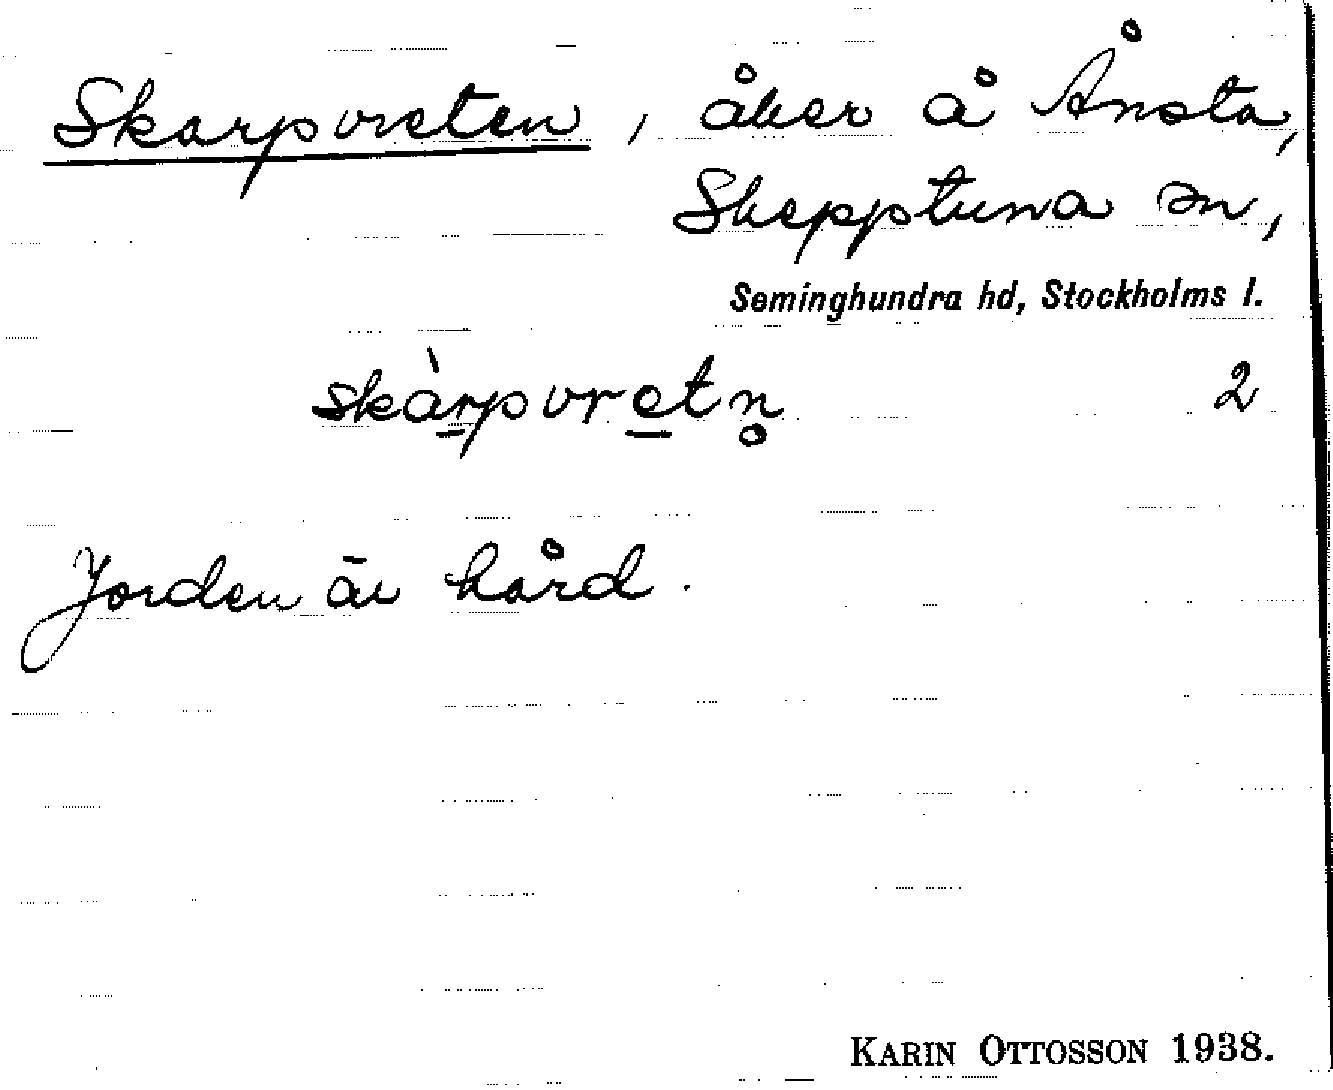 Skarpvreten, åker å Ånsta,
Skepptuna sn,
Seminghundra hd, Stockholms l.
skàrpvretn̥ 2
Jorden är hård.
KARIN OTTOSSON 1938.